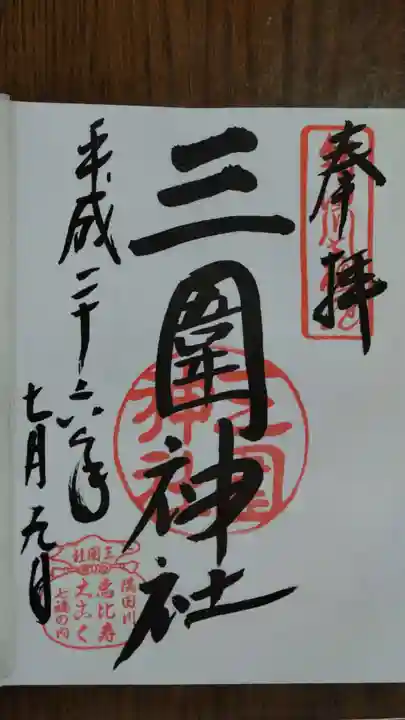 奉拝
三圍神社
平成二十六年
七月九日
三圍神社
三圍社
隅田川
恵比寿
大こく
七福の内